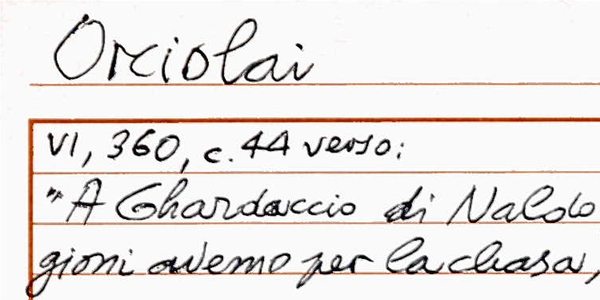 Orciolai
VI, 360, c. 44 verso:
"A Ghardaccio di Naldo
gioni avemo per la chasa,